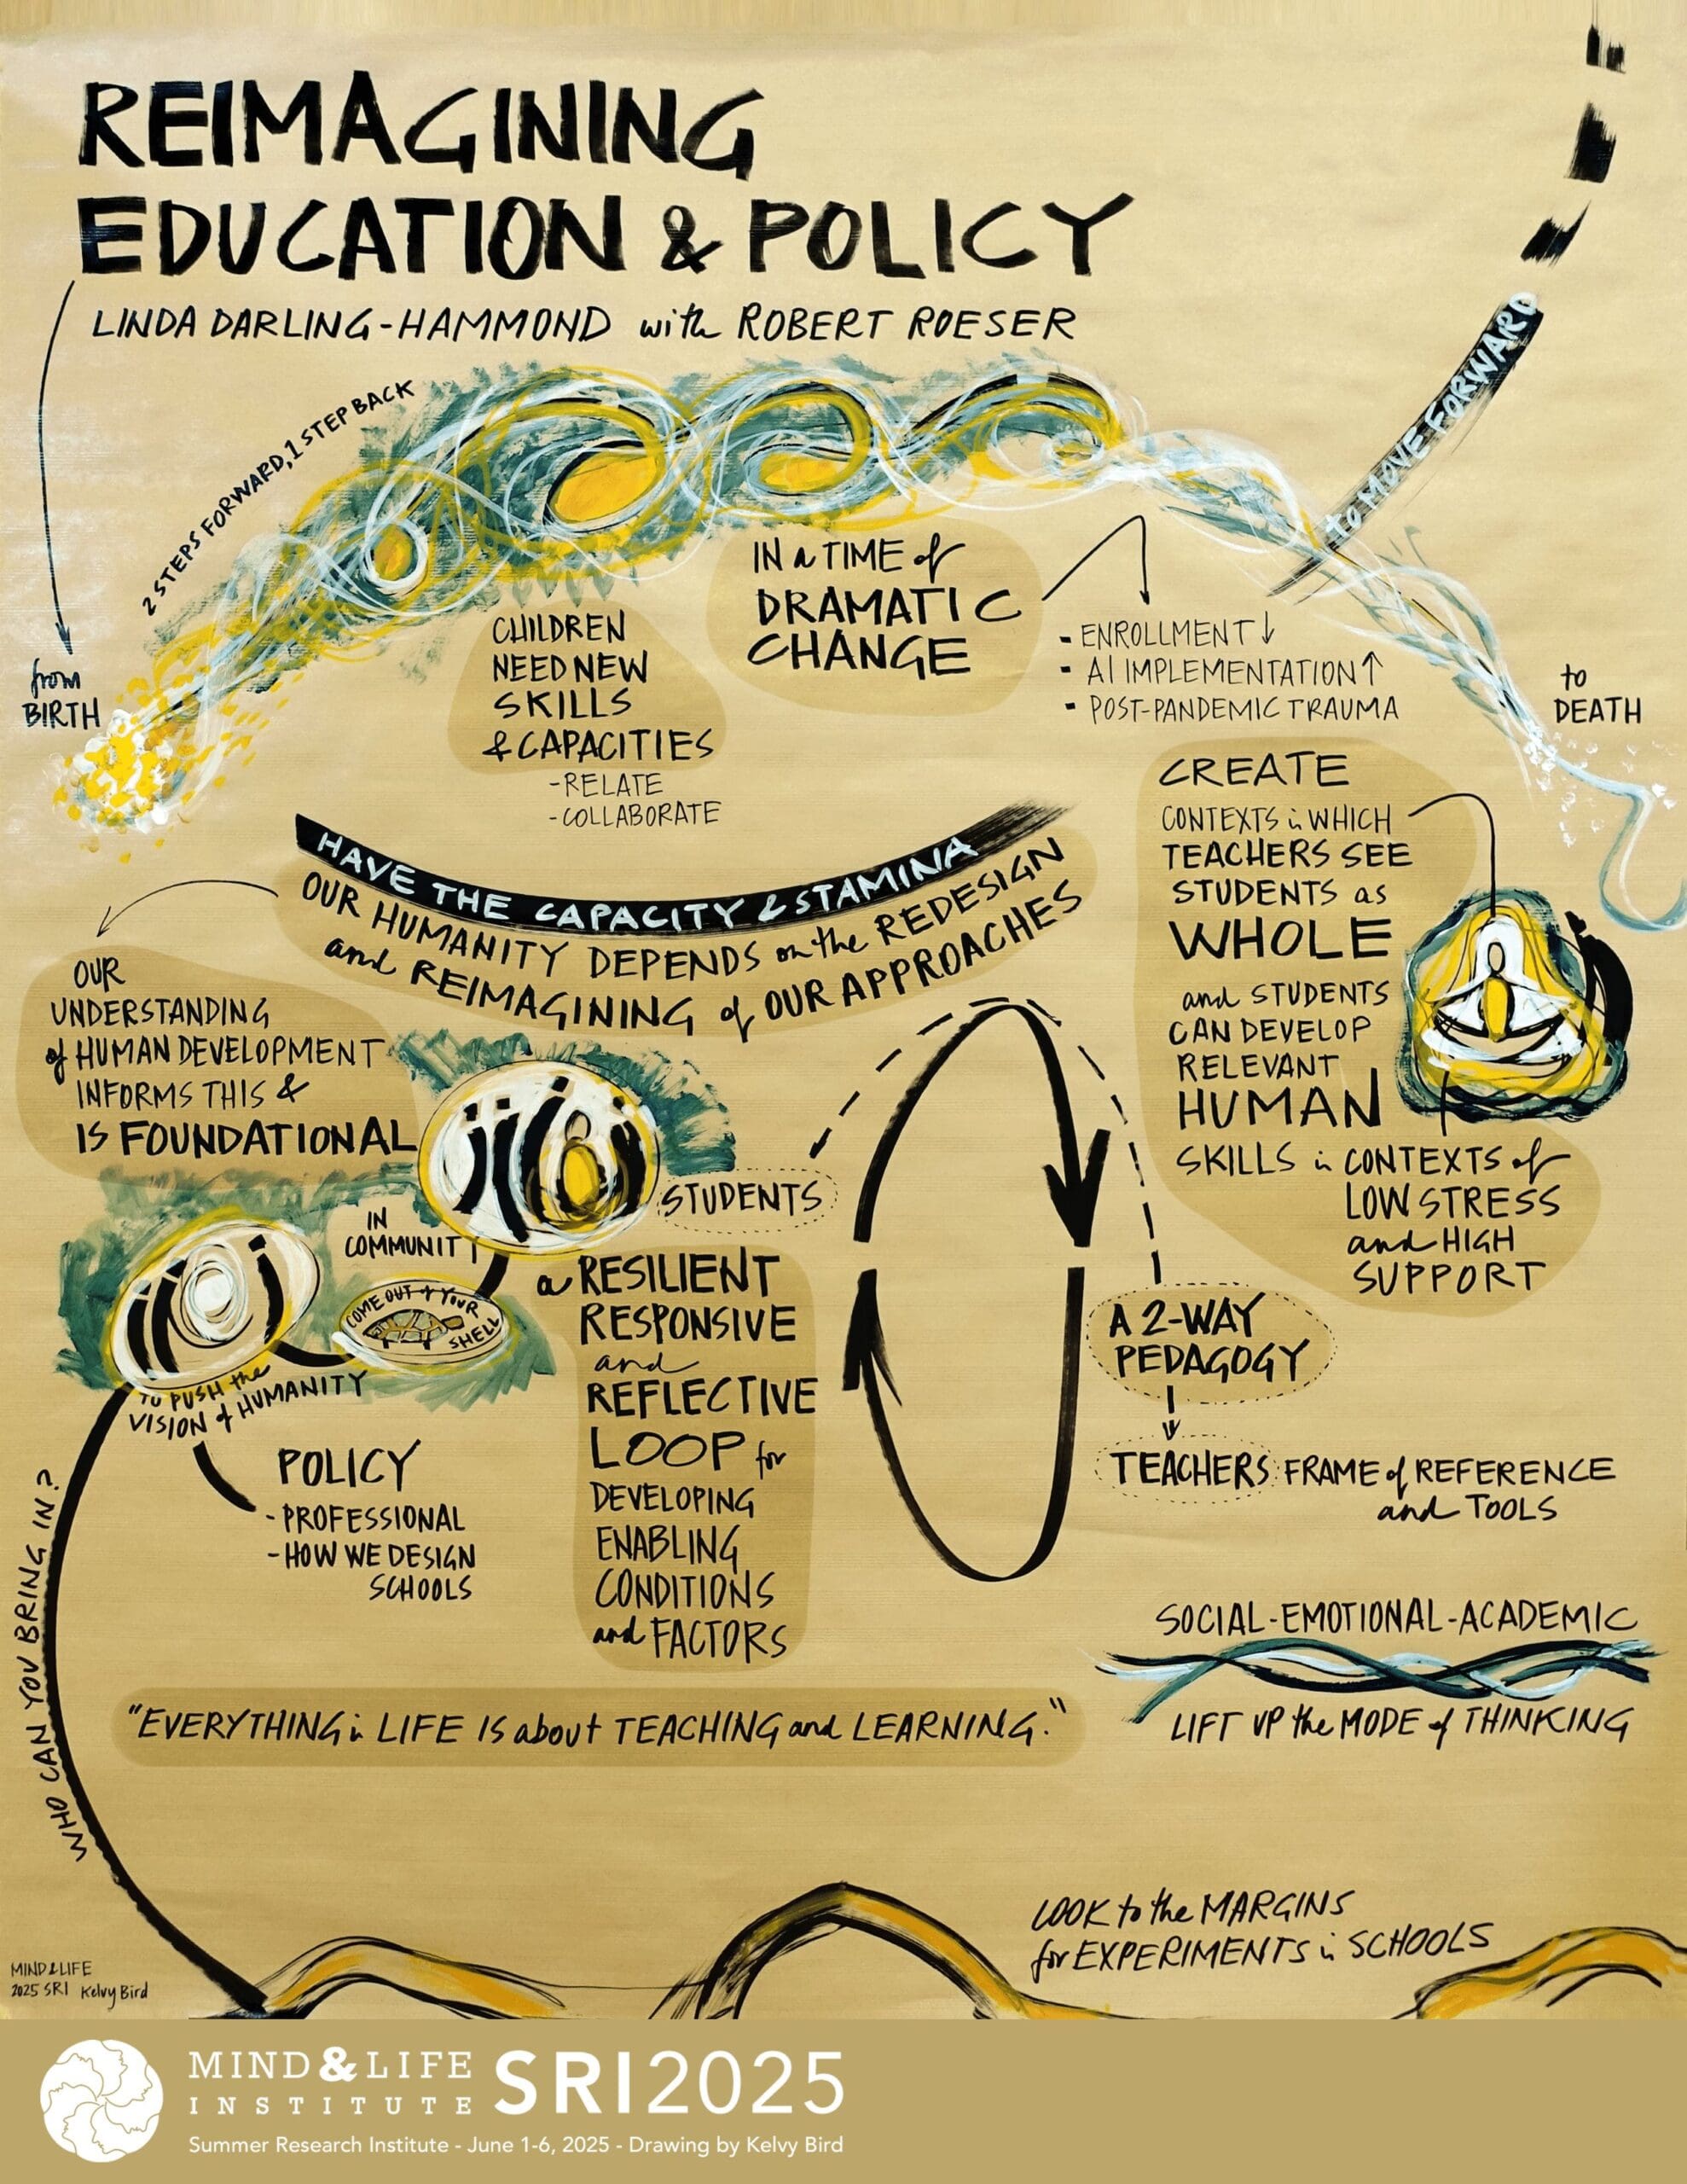 REIMAGINING
EDUCATION & POLICY
LINDA DARLING-HAMMOND with ROBERT ROESER
2 STEPS FORWARD, 1 STEP BACK
to MOVE FORWARD
from
BIRTH
to
DEATH
CHILDREN
NEED NEW
SKILLS
& CAPACITIES
- RELATE
- COLLABORATE
IN a TIME of
DRAMATIC
CHANGE
- ENROLLMENT ↓
- AI IMPLEMENTATION ↑
- POST-PANDEMIC TRAUMA
HAVE THE CAPACITY & STAMINA
OUR HUMANITY DEPENDS on the REDESIGN
and REIMAGINING of OUR APPROACHES
OUR
UNDERSTANDING
of HUMAN DEVELOPMENT
INFORMS THIS &
IS FOUNDATIONAL
CREATE
CONTEXTS in WHICH
TEACHERS SEE
STUDENTS as
WHOLE
and STUDENTS
CAN DEVELOP
RELEVANT
HUMAN
SKILLS in CONTEXTS of
LOW STRESS
and HIGH
SUPPORT
STUDENTS
IN
COMMUNITY
COME OUT of YOUR
SHELL
TO PUSH the
VISION of HUMANITY
POLICY
- PROFESSIONAL
- HOW WE DESIGN
SCHOOLS
a RESILIENT
RESPONSIVE
and
REFLECTIVE
LOOP for
DEVELOPING
ENABLING
CONDITIONS
and FACTORS
A 2-WAY
PEDAGOGY
TEACHERS: FRAME of REFERENCE
and TOOLS
WHO CAN YOU BRING IN?
SOCIAL-EMOTIONAL-ACADEMIC
LIFT UP the MODE of THINKING
"EVERYTHING in LIFE IS about TEACHING and LEARNING."
LOOK to the MARGINS
for EXPERIMENTS in SCHOOLS
MIND & LIFE
2025 SRI Kelvy Bird
MIND&LIFE
INSTITUTE
SRI2025
Summer Research Institute - June 1-6, 2025 - Drawing by Kelvy Bird